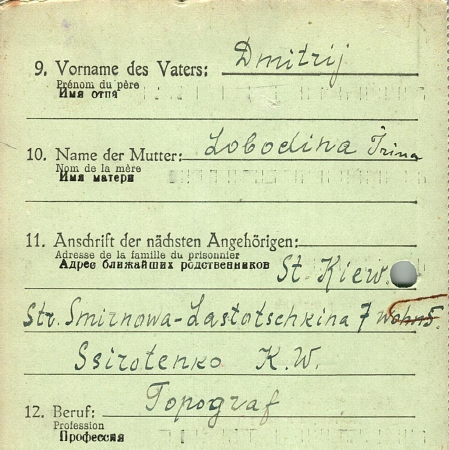 9. Vorname des Vaters: Dmitrij
Prénom du père
Имя отца
10. Name der Mutter: Lobodina Irina
Nom de la mère
Имя матери
11. Anschrift der nächsten Angehörigen:
Adresse de la famille du prisonnier
Адрес ближайших родственников St. Kiew.
Str. Smirnowa-Lastotschkina 7 wohn 5.
Ssirotenko K.W.
12. Beruf: Topograf
Profession
Профессия